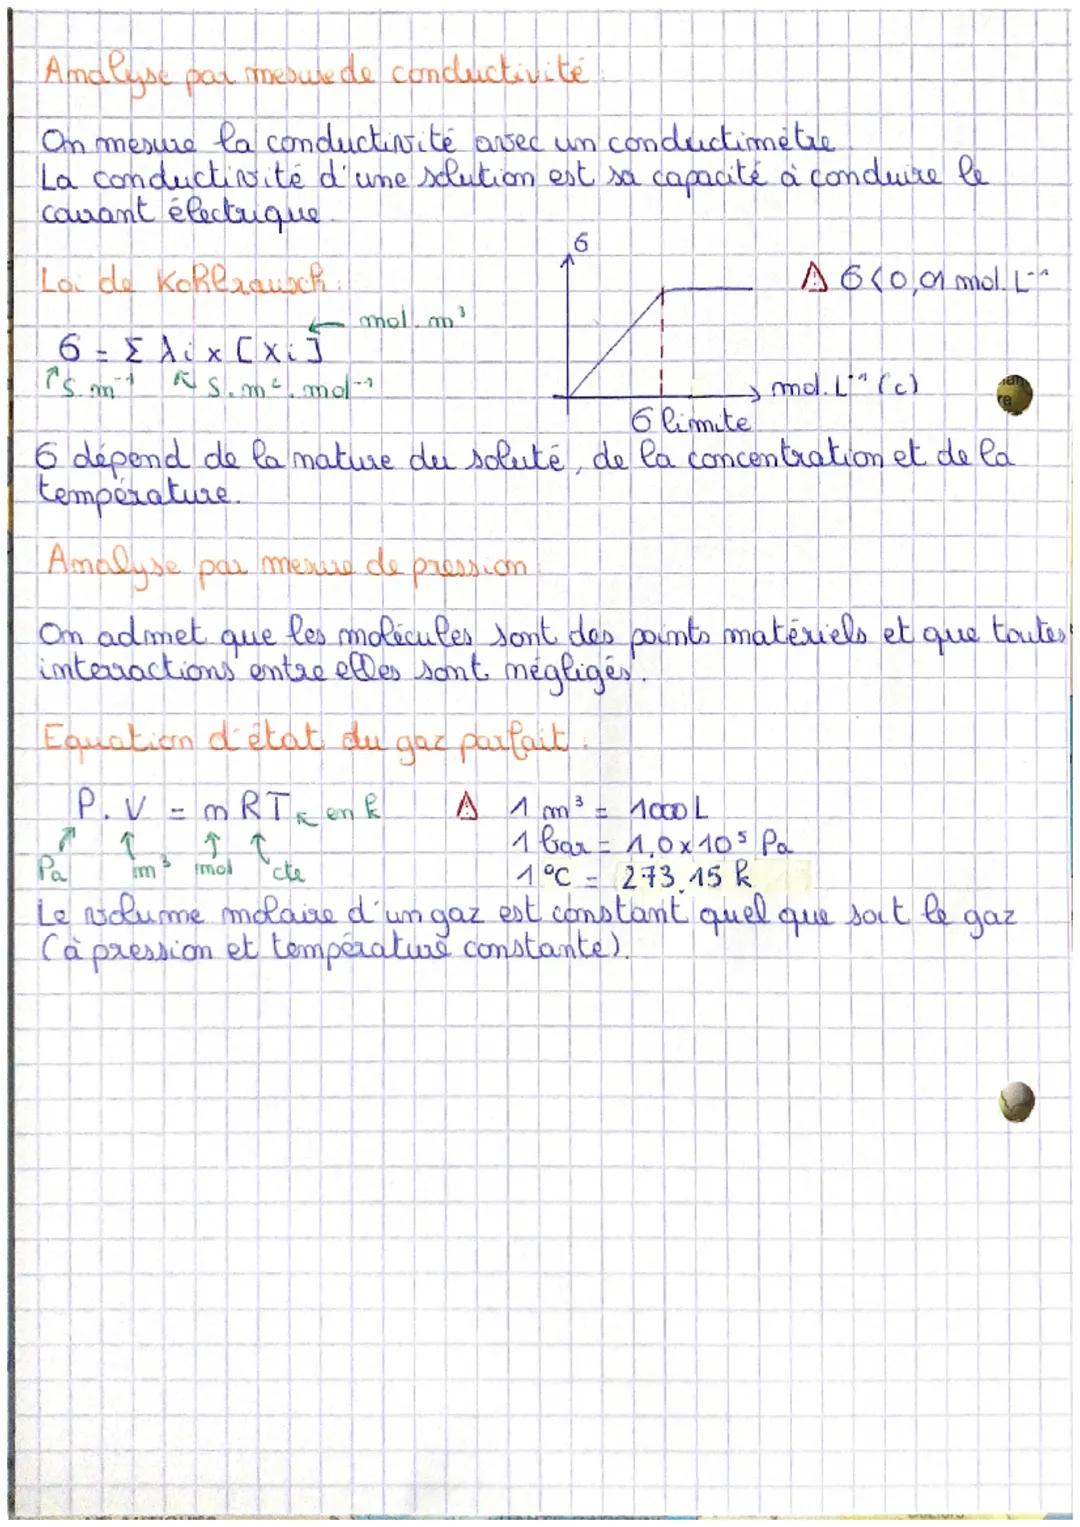 Analyse par mesure de conductivité :
On mesure la conductivité avec un conductimètre.
La conductivité d'une solution est sa capacité à conduire le
courant électrique.
Loi de Kohlrausch :
mol.m³
σ = Σ λi x [Xi]
S.m⁻¹
S.m².mol⁻¹
σ
⚠ σ<0,01 mol.L⁻¹
mol.L⁻¹ (c)
σ limite
σ dépend de la nature du soluté, de la concentration et de la
température.
Analyse par mesure de pression
On admet que les molécules sont des points matériels et que toutes
interractions entre elles sont négligés.
Equation d'état du gaz parfait :
P.V = nRT en k
Pa
m³
mol
cte
⚠ 1 m³ = 1000 L
1 bar = 1,0 x 10⁵ Pa
1 °C = 273,15 k
Le volume molaire d'un gaz est constant quel que soit le gaz
(à pression et température constante).